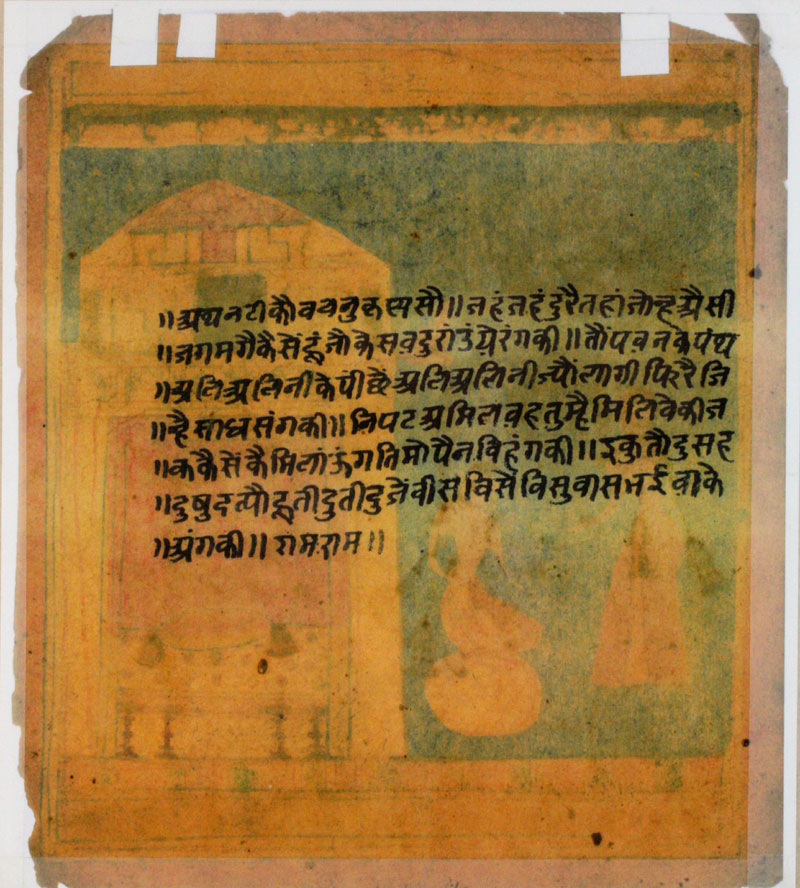 ॥अथ नटी कौ वचनु कृष्ण सौ॥ जहं जहं दुरै तहां जोन्ह अैसी
॥जगमगै कैसैहूं जौ केसव दुरांउं ये रंगकी॥ तौं पवन के पंथ
॥अलि अलिनी के पीछैं अलि अलिनी ज्यौं लागी फिरै जि
॥न्है साध संगकी॥ निपट अमिल वह तुमै मिलिवे की ज
॥क कैसे कै मिलांऊं गति मो पै न विहंगकी॥ इकु तौ दुसह
॥दुषु दूती दुतीदुजें वीस विसै विसु वास भई वाके
॥अंगकी॥ रामराम॥